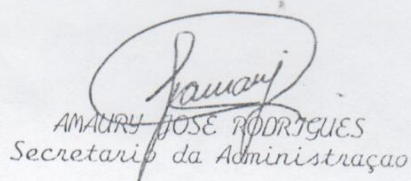 AMAURY JOSE RODRIGUES
Secretario da Administraçao